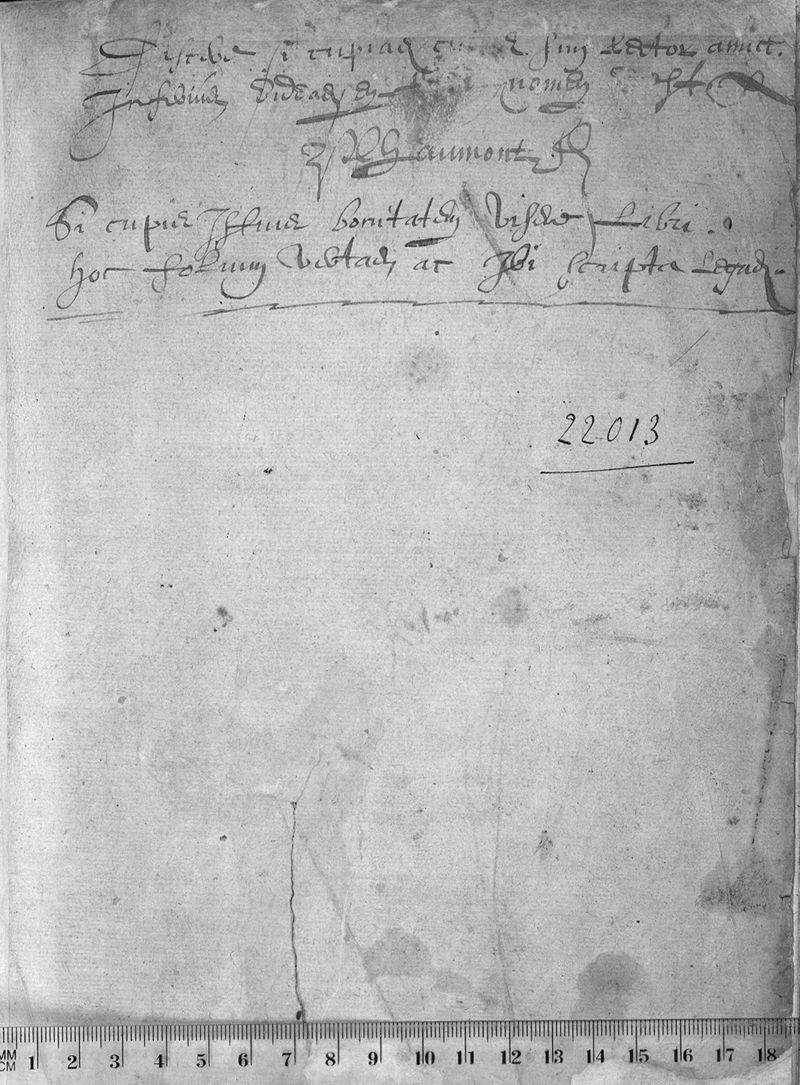 Discere si cupias sim Lector amice
Inferius videas en nomen
Beaumont
Si cupis Istius bonitatem visere Libri.
hoc folium vertas ac Ibi scripta Legas.
22013
MM
CM 1 2 3 4 5 6 7 8 9 10 11 12 13 14 15 16 17 18